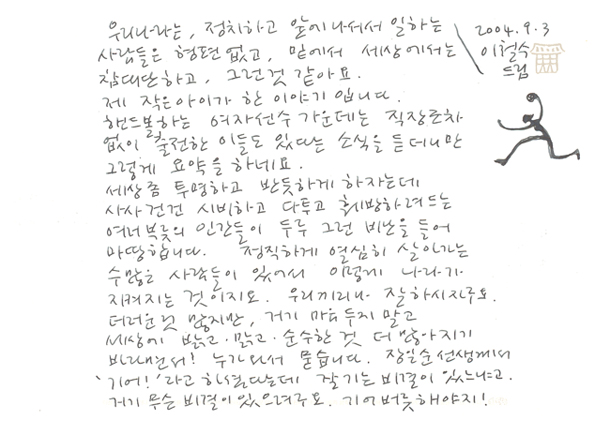 우리나라는, 정치하고 앞에 나서서 일하는
사람들은 형편 없고, 밑에서 세상에서는
참 대단하고, 그런 것 같아요.
제 작은아이가 한 이야기 입니다.
핸드볼하는 여자선수 가운데는 직장조차
없이 출전한 이들도 있다는 소식을 듣더니만
그렇게 요약을 하네요.
세상 좀 투명하고 반듯하게 하자는데
사사건건 시비하고 다투고 훼방하려드는
여러 부류의 인간들이 두루 그런 비난을 들어
마땅합니다. 정직하게 열심히 살아가는
수많은 사람들이 있어서 이렇게 나라가
지켜지는 것이지요. 우리끼리나 잘하시지요.
더러운 것 많지만, 거기 마음 두지 말고
세상에 밝고·맑고·순수한 것 더 많아지기
바라면서! 누가 와서 묻습니다. 장일순선생께서
'기어!'라고 하셨다는데 잘 기는 비결이 있느냐고.
거기 무슨 비결이 있으려구요. 기어 버릇해야지!
2004.9.3
이철수
드림